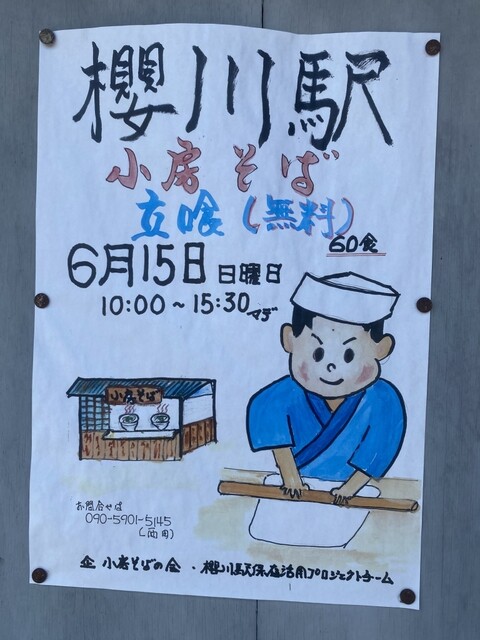 櫻川駅
小房そば
立喰(無料)
60食
6月15日日曜日
10:00~15:30マデ
小房そば
お問合せは
090-5901-5145
(西田)
企 小房そばの会・櫻川駅保存活用プロジェクトチーム